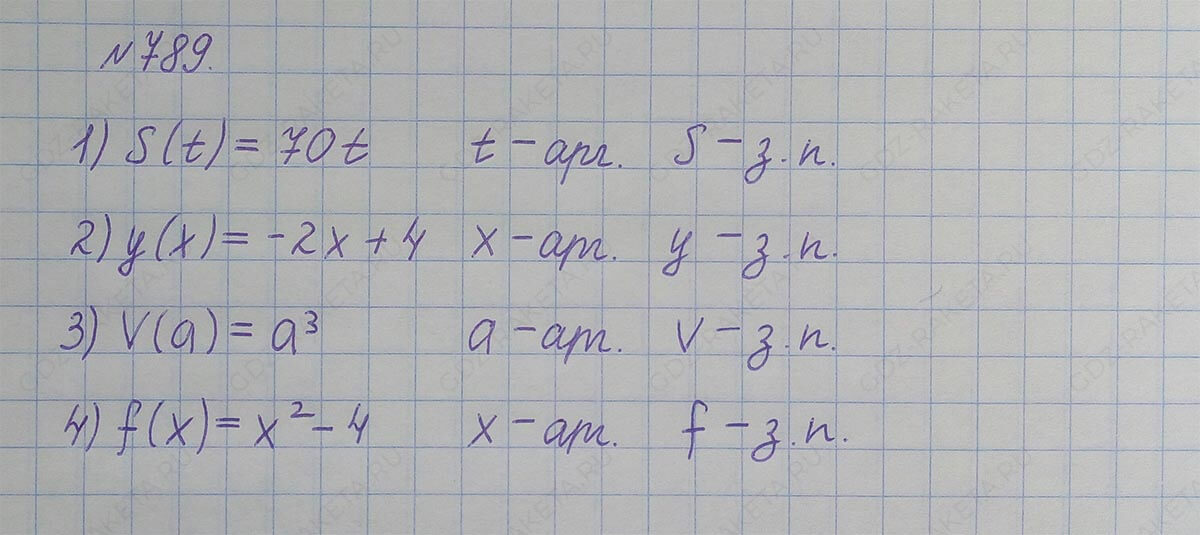 №789.
1) S(t) = 70t t – арг. S – з.п.
2) y(x) = -2x + 4 x – арг. y – з.п.
3) V(a) = a³ a – арг. V – з.п.
4) f(x) = x² - 4 x – арг. f – з.п.